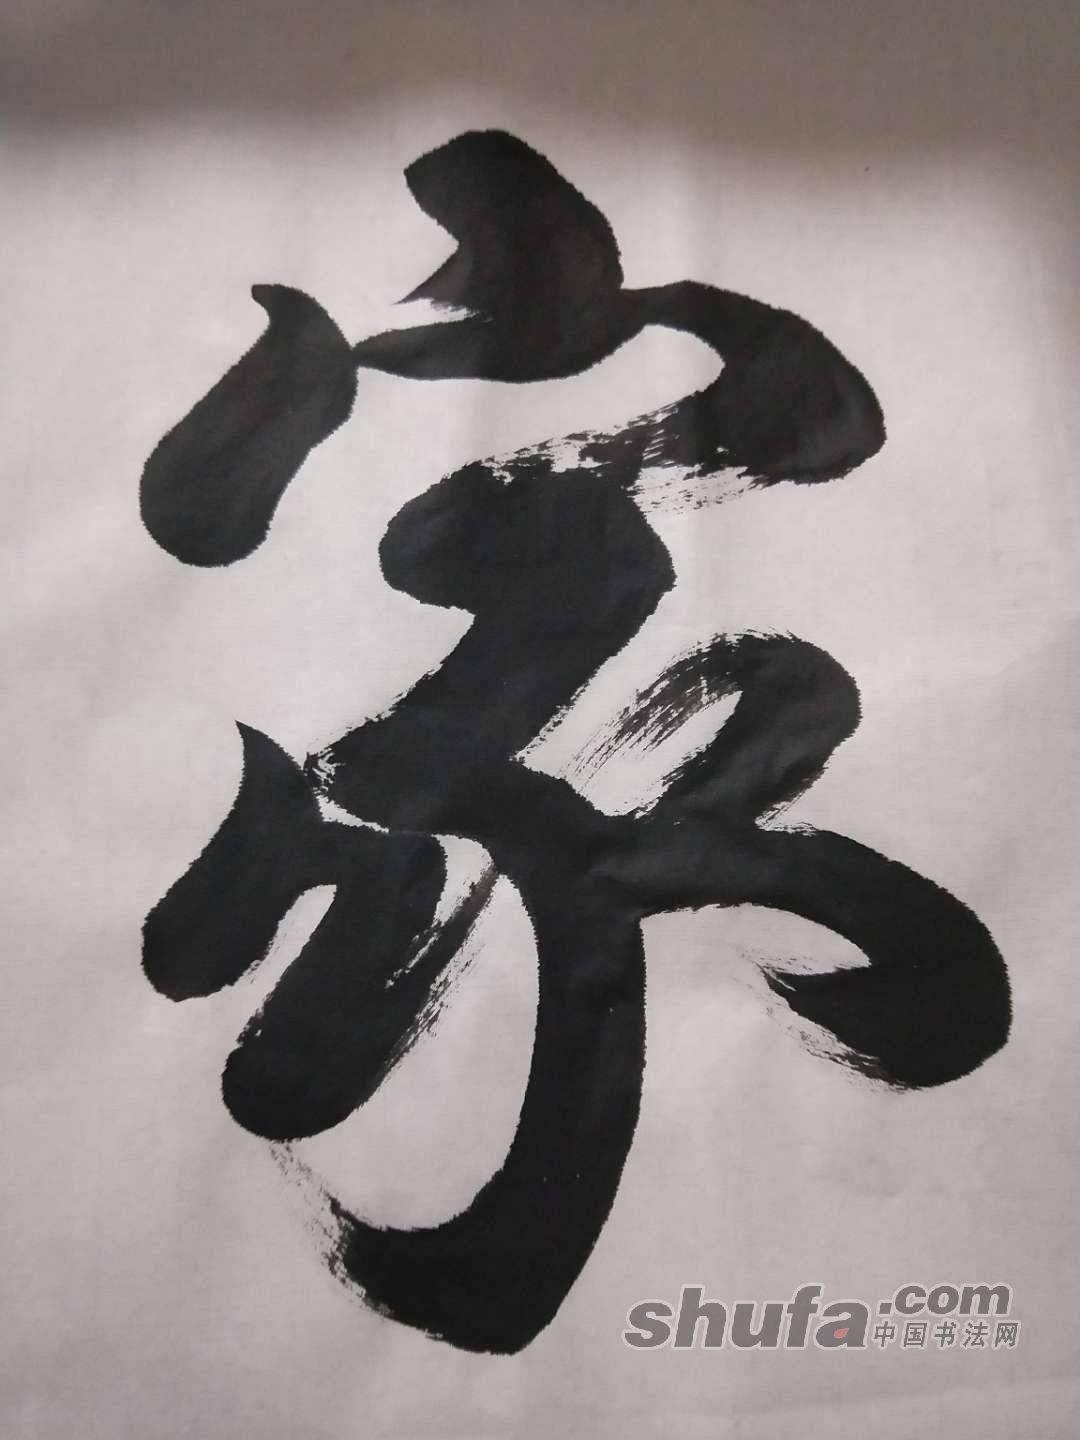 家
shufa.com
中国书法网